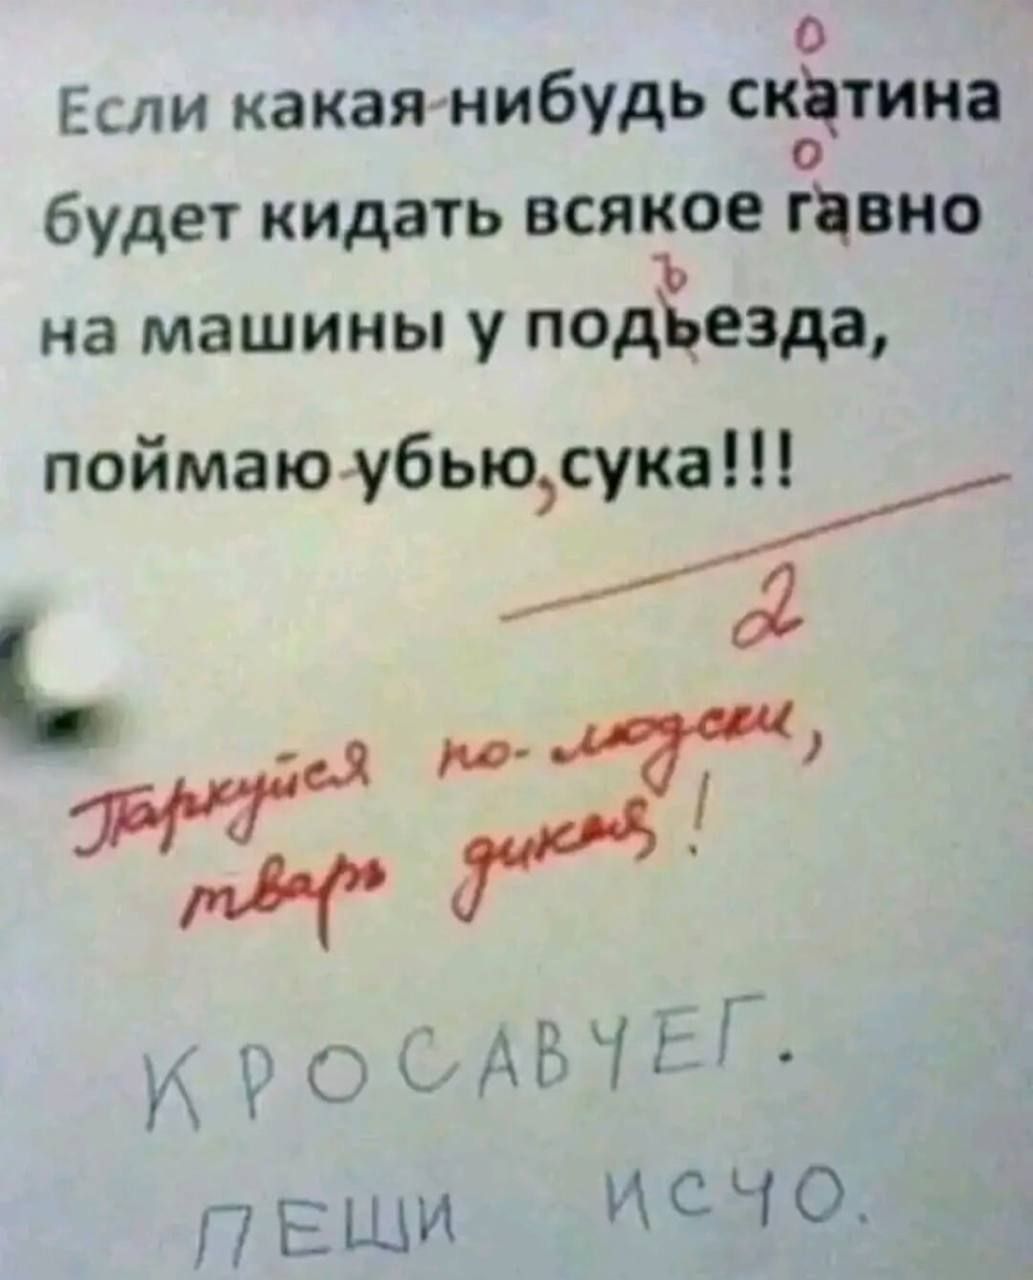 Если какая-нибудь скатина
о
будет кидать всякое гавно
о
на машины у подьезда,
ъ
поймаю-убью, сука!!!
2
Паркуйся по-людски,
тварь дикая!
КРОСАВЧЕГ.
ПЕШИ ИСЧО.